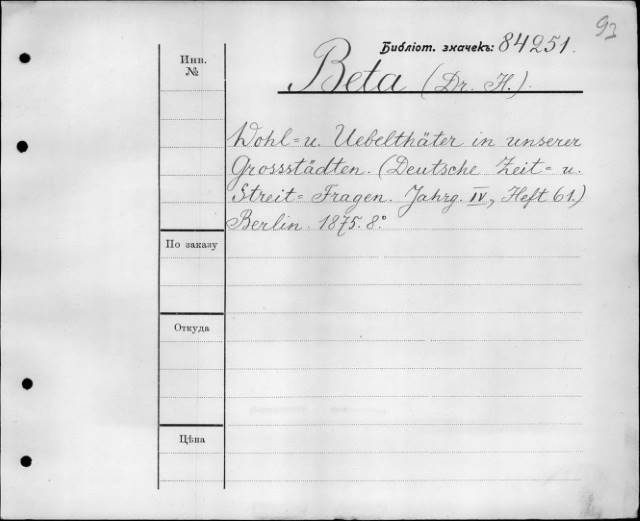 93
Библіот. значекъ: 84251.
Инв.
№
Beta (Dr. H.)
Wohl= u. Uebelthäter in unserer
Grossstädten. (Deutsche Zeit= u.
Streit= Fragen. Jahrg. IV, Heft 61.)
Berlin. 1875. 8°
По заказу
Откуда
Цѣна